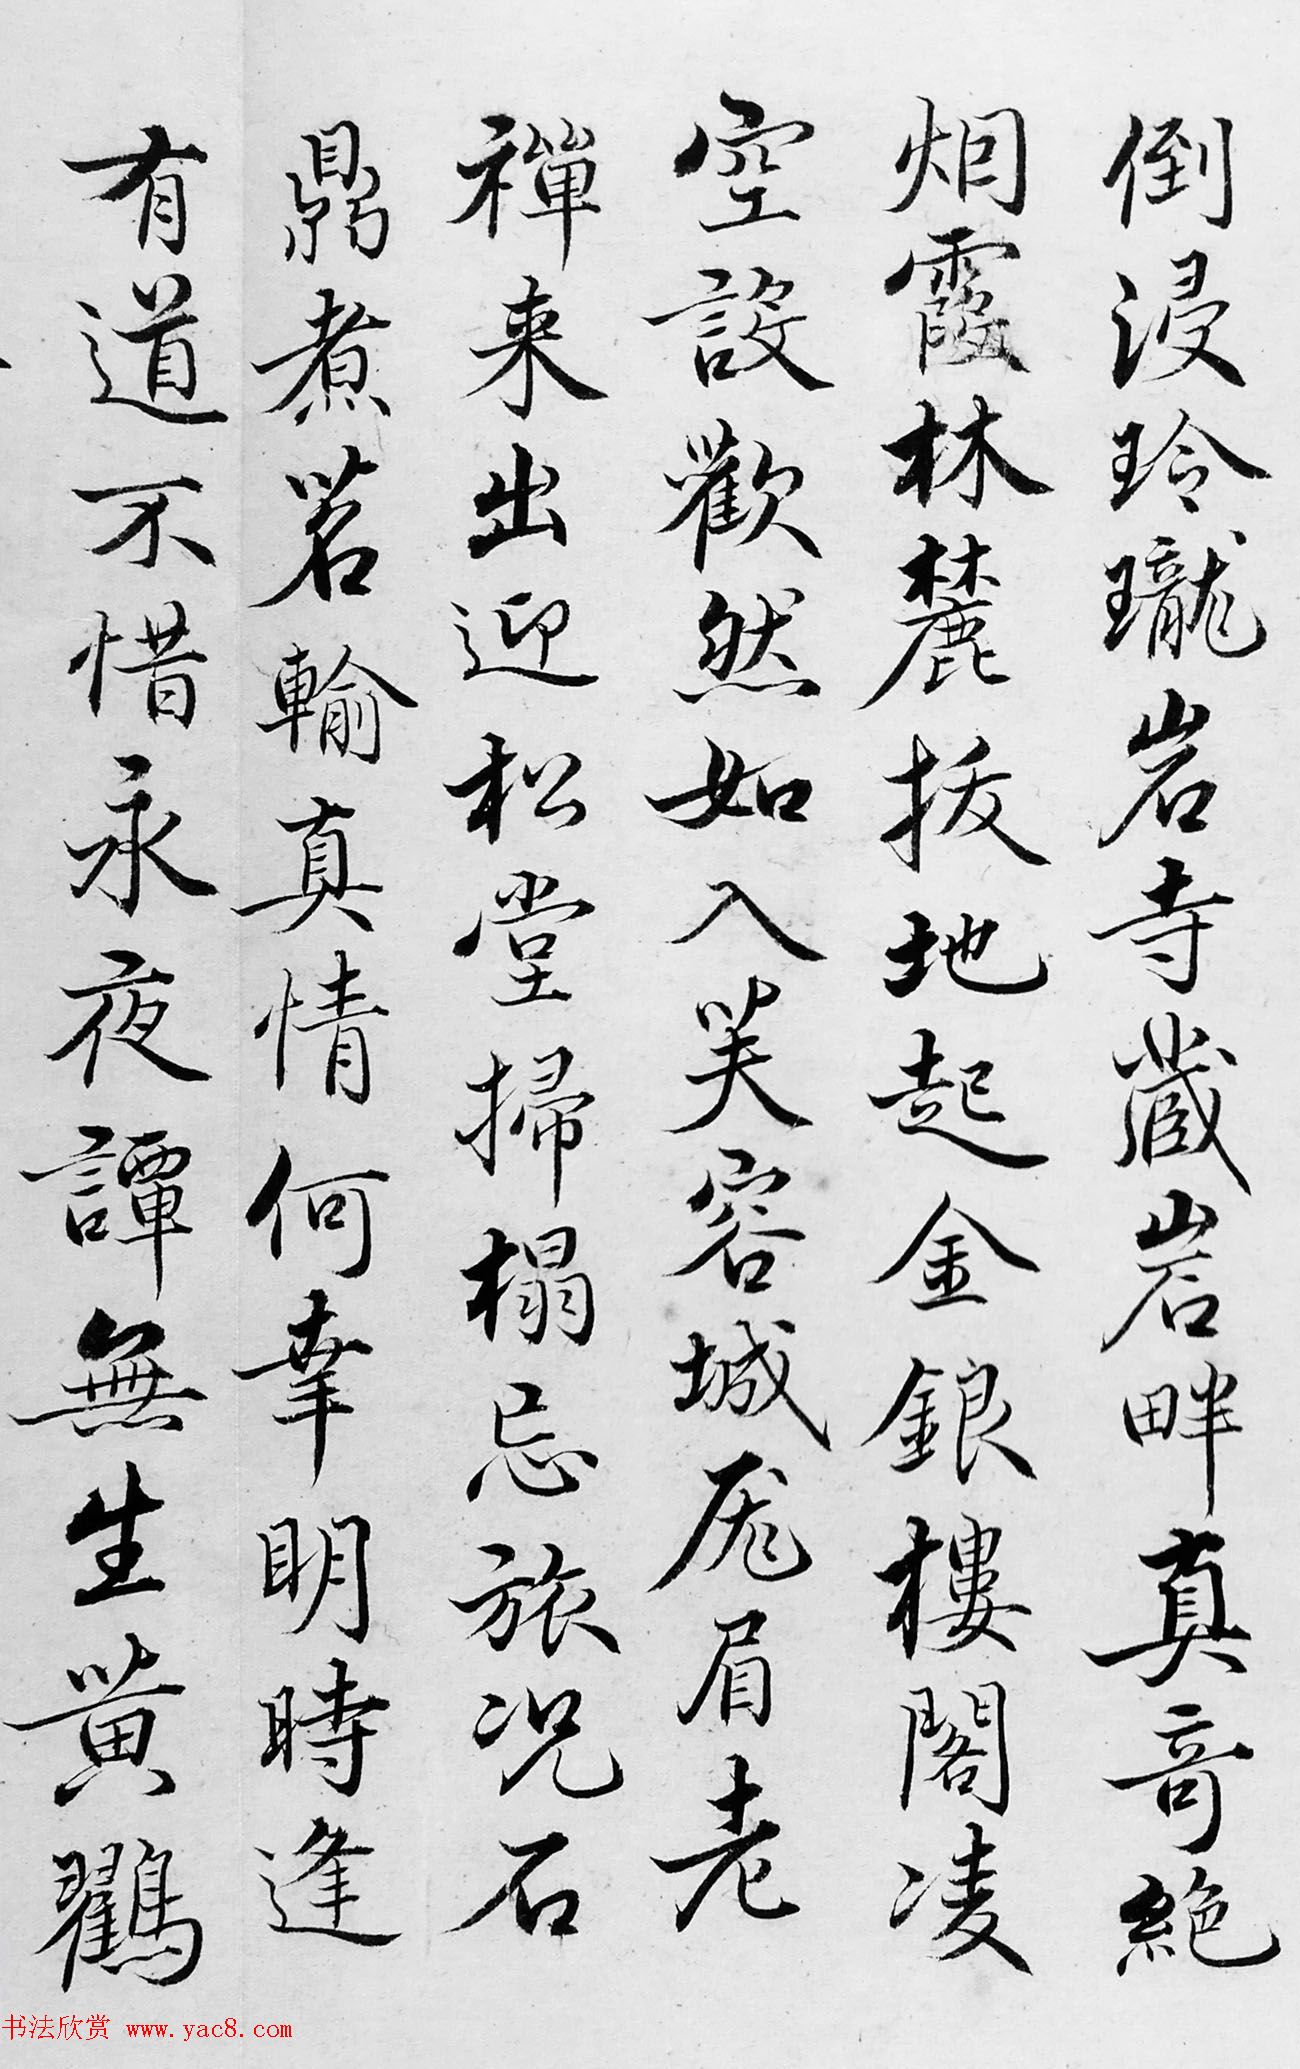 倒浸玲瓏岩寺藏岩畔真奇絶
烟霞林麓拔地起金銀樓閣凌
空設歡然如入芙容城厖眉老
禪来出迎松堂掃榻忘旅况石
鼎煮茗輸真情何幸明時逢
有道不惜永夜譚無生黄鸛
书法欣赏 www.yac8.com